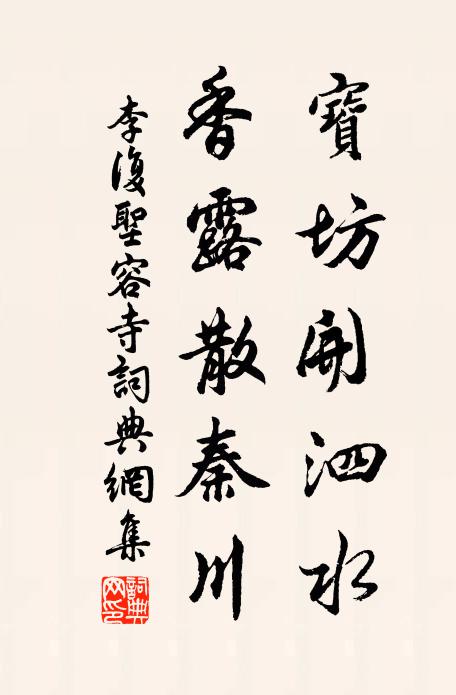 寶坊開泗水
香露散秦川
李復聖容寺詞典網集
詞典網印